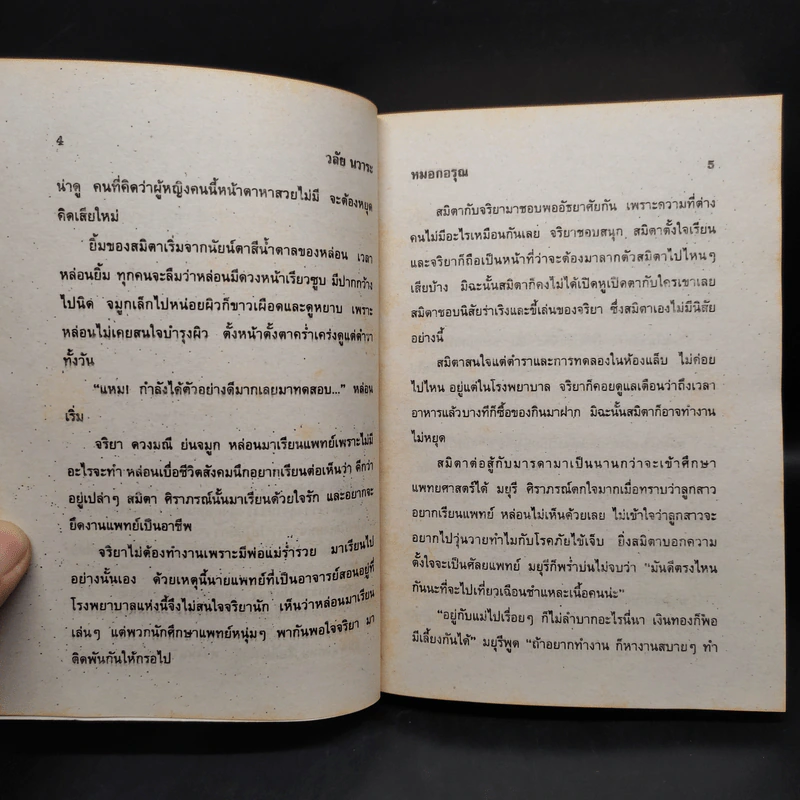 4
วลัย นวาระ
น่าดู คนที่คิดว่าผู้หญิงคนนี้หน้าตาหาสวยไม่มี จะต้องหยุด
คิดเสียใหม่
ยิ้มของสมิตาเริ่มจากนัยน์ตาสีน้ำตาลของหล่อน เวลา
หล่อนยิ้ม ทุกคนจะลืมว่าหล่อนมีดวงหน้าเรียวซูบ มีปากกว้าง
ไปนิด จมูกเล็กไปหน่อยผิวก็ขาวเผือดและดูหยาบ เพราะ
หล่อนไม่เคยสนใจบำรุงผิว ตั้งหน้าตั้งตาคร่ำเคร่งดูแต่ตำรา
ทั้งวัน
“แหม! กำลังได้ตัวอย่างดีมากเลยมาทดสอบ...” หล่อน
เริ่ม
จริยา ดวงมณี ย่นจมูก หล่อนมาเรียนแพทย์เพราะไม่มี
อะไรจะทำ หล่อนเบื่อชีวิตสังคมนึกอยากเรียนต่อเห็นว่า ดีกว่า
อยู่เปล่าๆ สมิตา ศิราภรณ์นั้นมาเรียนด้วยใจรัก และอยากจะ
ยึดงานแพทย์เป็นอาชีพ
จริยาไม่ต้องทำงานเพราะมีพ่อแม่ร่ำรวย มาเรียนไป
อย่างนั้นเอง ด้วยเหตุนี้นายแพทย์ที่เป็นอาจารย์สอนอยู่ที่
โรงพยาบาลแห่งนี้จึงไม่สนใจจริยานัก เห็นว่าหล่อนมาเรียน
เล่นๆ แต่พวกนักศึกษาแพทย์หนุ่มๆ พากันพอใจจริยา มา
ติดพันกันให้กรอไป
หมอกอรุณ
5
สมิตากับจริยามาชอบพออัธยาศัยกัน เพราะความที่ต่าง
คนไม่มีอะไรเหมือนกันเลย จริยาชอบสนุก สมิตาตั้งใจเรียน
และจริยาก็ถือเป็นหน้าที่ว่าจะต้องมาลากตัวสมิตาไปไหนๆ
เสียบ้าง มิฉะนั้นสมิตาก็คงไม่ได้เปิดหูเปิดตากับใครเขาเลย
สมิตาชอบนิสัยร่าเริงและขี้เล่นของจริยา ซึ่งสมิตาเองไม่มีนิสัย
อย่างนี้
สมิตาสนใจแต่ตำราและการทดลองในห้องแล็บ ไม่ค่อย
ไปไหน อยู่แต่ในโรงพยาบาล จริยาก็คอยดูแลเตือนว่าถึงเวลา
อาหารแล้วบางทีก็ซื้อของกินมาฝาก มิฉะนั้นสมิตาก็อาจทำงาน
ไม่หยุด
สมิตาต่อสู้กับมารดามาเป็นนานกว่าจะเข้าศึกษา
แพทยศาสตร์ได้ มยุรี ศิราภรณ์ตกใจมากเมื่อทราบว่าลูกสาว
อยากเรียนแพทย์ หล่อนไม่เห็นด้วยเลย ไม่เข้าใจว่าลูกสาวจะ
อยากไปวุ่นวายทำไมกับโรคภัยไข้เจ็บ ยิ่งสมิตาบอกความ
ตั้งใจจะเป็นศัลยแพทย์ มยุรีก็พร่ำบ่นไม่จบว่า “มันดีตรงไหน
กันนะที่จะไปเที่ยวเฉือนชำแหละเนื้อคนน่ะ”
“อยู่กับแม่ไปเรื่อยๆ ก็ไม่ลำบากอะไรนี่นา เงินทองก็พอ
มีเลี้ยงกันได้” มยุรีพูด “ถ้าอยากทำงาน ก็หางานสบายๆ ทำ